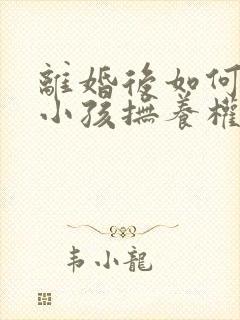 離婚後如何
小孩撫養權
韦小龍